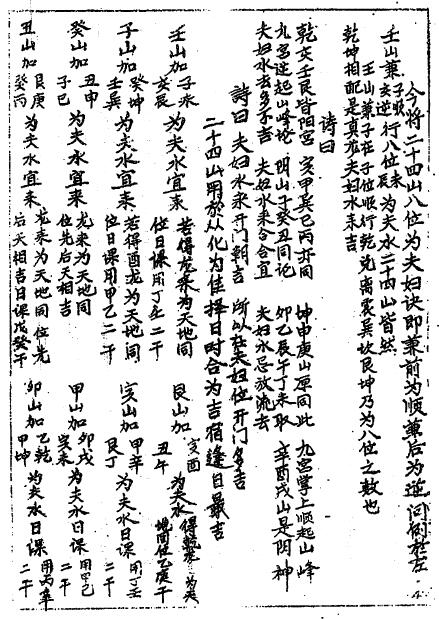 今将二十四山八位为夫妇诀即兼前为顺兼后为逆问例在左
壬山兼子收未
亥逆行八位辰为夫水二十四山皆然
壬山兼子在子位顺行乾兑离震巽坎艮坤乃为八位之数也
乾坤相配是真龙夫妇水来吉
诗曰
乾亥壬艮皆阳宫 亥甲巽巳丙亦同 坤申庚山原同此 九宫掌上顺起山峰
九宫逆起山峰论 阴山子癸丑同记 卯乙辰午丁未取 辛酉戌山是阴神
夫妇水去多不吉 夫妇水来合合宜 夫妇水忌放流去
诗曰 夫妇水永开门朝吉 所以在夫妇位开门多吉
二十四山用於从化为佳择日时合为吉宿逢日最吉
壬山加子未癸辰为夫水宜来 若得龙来为天地同位日课用丁壬二干
子山加癸坤壬巽为夫水宜来 若得酉龙为天地同位日课用甲乙二干
癸山加丑申子巳为夫水宜来 龙来为天地同位先后天相吉
丑山加艮庚癸丙为夫水宜来 龙来为天地同位先后天相吉日课戊癸干
艮山加寅酉丑午为夫水 得龙为天地同位乙庚干
亥山加甲辛艮丁为夫水日课用丁壬二干
甲山加卯戌寅未为夫水日课用甲己二干
卯山加乙乾甲坤为夫水日课用丙辛二干